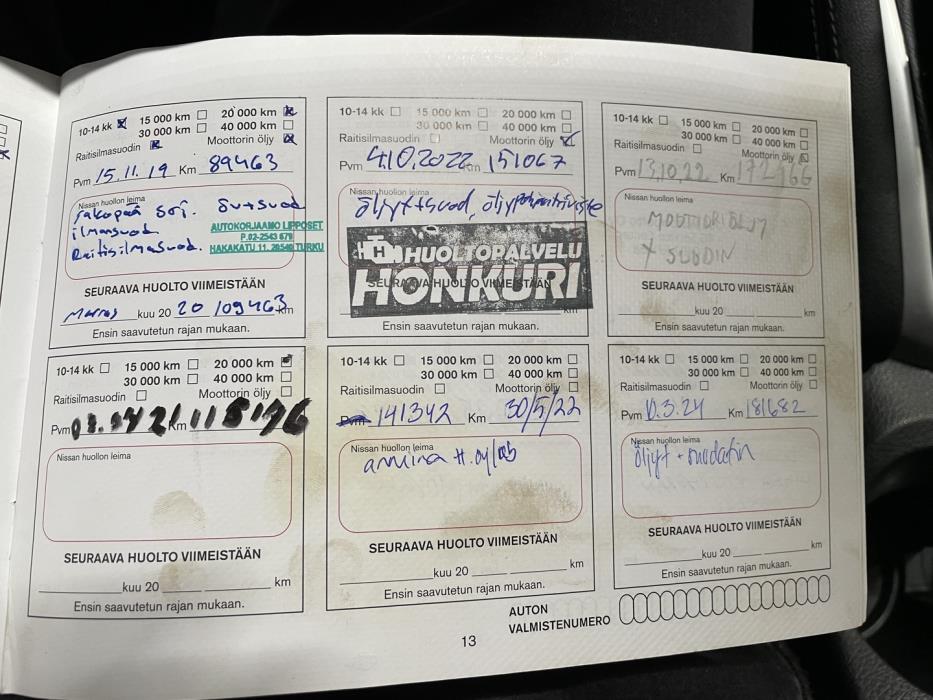 10-14 kk 15 000 km 20 000 km
30 000 km 40 000 km
Raitisilmasuodin Moottorin öljy
Pvm 15.11.19 Km 89463
Nissan huollon leima
jakopää srj. öv+suod
ilmansuod.
Raitisilmasuod.
AUTOKORJAAMO LIPPOSET
P.02-2543 679
HAKAKATU 11. 20540 TURKU
SEURAAVA HUOLTO VIIMEISTÄÄN
Marras kuu 20 20 109463 km
Ensin saavutetun rajan mukaan.
10-14 kk 15 000 km 20 000 km
30 000 km 40 000 km
Raitisilmasuodin Moottorin öljy
Pvm 4.10.2022 Km 151067
Nissan huollon leima
öljyt+suod,
HUOLTOPALVELU
SEURAAVA HUOLTO VIIMEISTÄÄN
HONKURI
km
10-14 kk 15 000 km 20 000 km
30 000 km 40 000 km
Raitisilmasuodin Moottorin öljy
Pvm 13.10.22 Km 172166
Nissan huollon leima
MOOTTORIÖLJY
+ SUODIN
SEURAAVA HUOLTO VIIMEISTÄÄN
kuu 20 km
Ensin saavutetun rajan mukaan.
10-14 kk 15 000 km 20 000 km
30 000 km 40 000 km
Raitisilmasuodin Moottorin öljy
Pvm Km
Nissan huollon leima
SEURAAVA HUOLTO VIIMEISTÄÄN
kuu 20 km
Ensin saavutetun rajan mukaan.
10-14 kk 15 000 km 20 000 km
30 000 km 40 000 km
Raitisilmasuodin Moottorin öljy
Pvm 141342 Km 30/5/22
Nissan huollon leima
SEURAAVA HUOLTO VIIMEISTÄÄN
kuu 20 km
Ensin saavutetun rajan mukaan.
10-14 kk 15 000 km 20 000 km
30 000 km 40 000 km
Raitisilmasuodin Moottorin öljy
Pvm 10.3.24 Km 181682
Nissan huollon leima
öljyt +
SEURAAVA HUOLTO VIIMEISTÄÄN
kuu 20 km
Ensin saavutetun rajan mukaan.
AUTON
VALMISTENUMERO
13